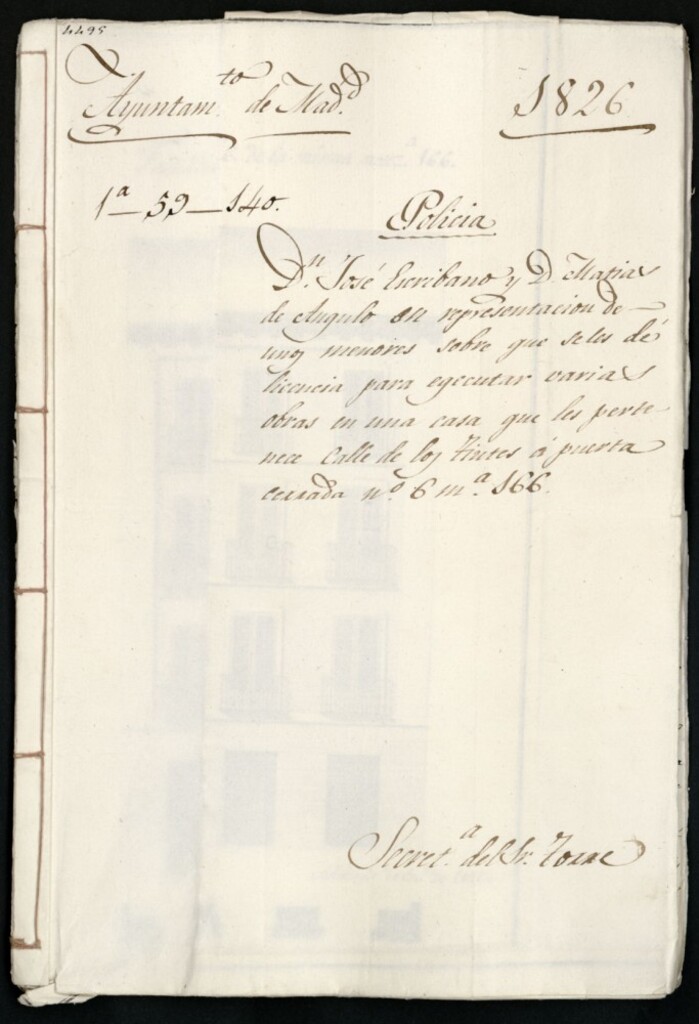 4495
Ayuntam.to de Mad.d
1826
1.a — 59 — 140.
Policia
D.n José Escribano y D. Matias
de Angulo en representacion de
unos menores sobre que se les dé
licencia para egecutar varias
obras en una casa que les perte-
nece Calle de los Tintes á puerta
cerrada n.o 6 m.a 166.
Secret.a del Sr.